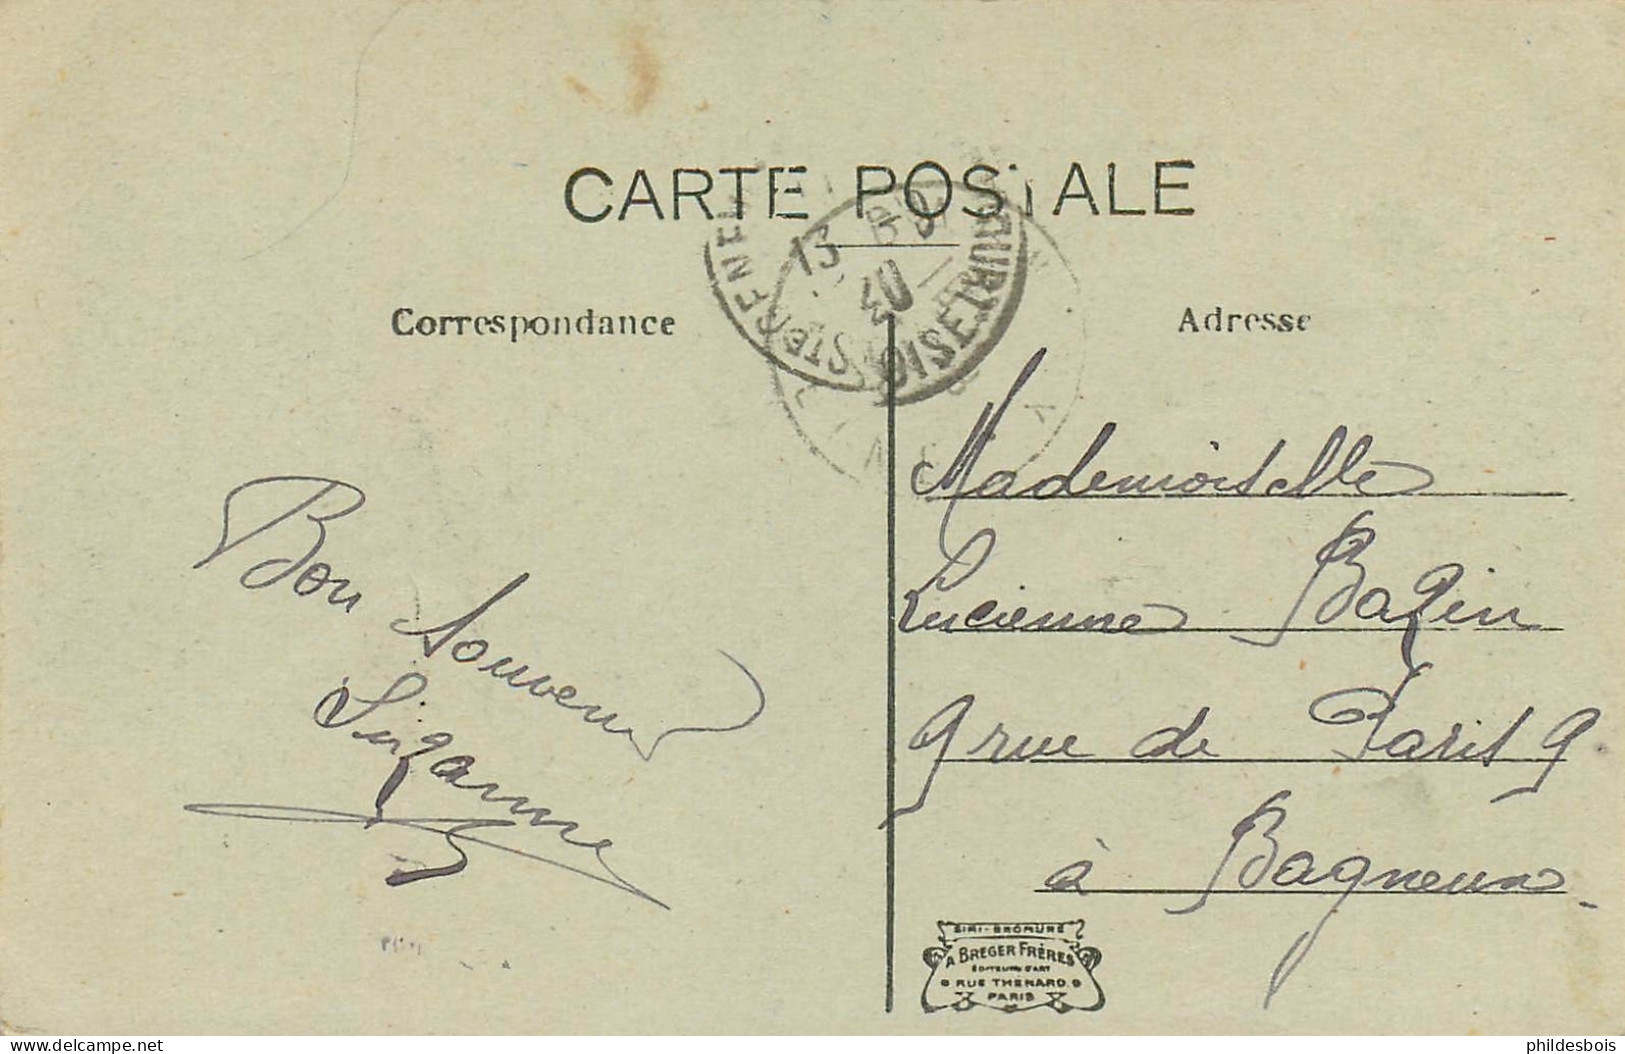 CARTE POSTALE
Correspondance
Adresse
13
Bon Souvenir
Suzanne
Mademoiselle
Lucienne Bazin
9 rue de Paris 9
à Bagneux
SIMI-BROMURE
A BREGER FRÈRES
ÉDITEURS D'ART
9 RUE THENARD 9
PARIS
delcampe.net
phildesbois